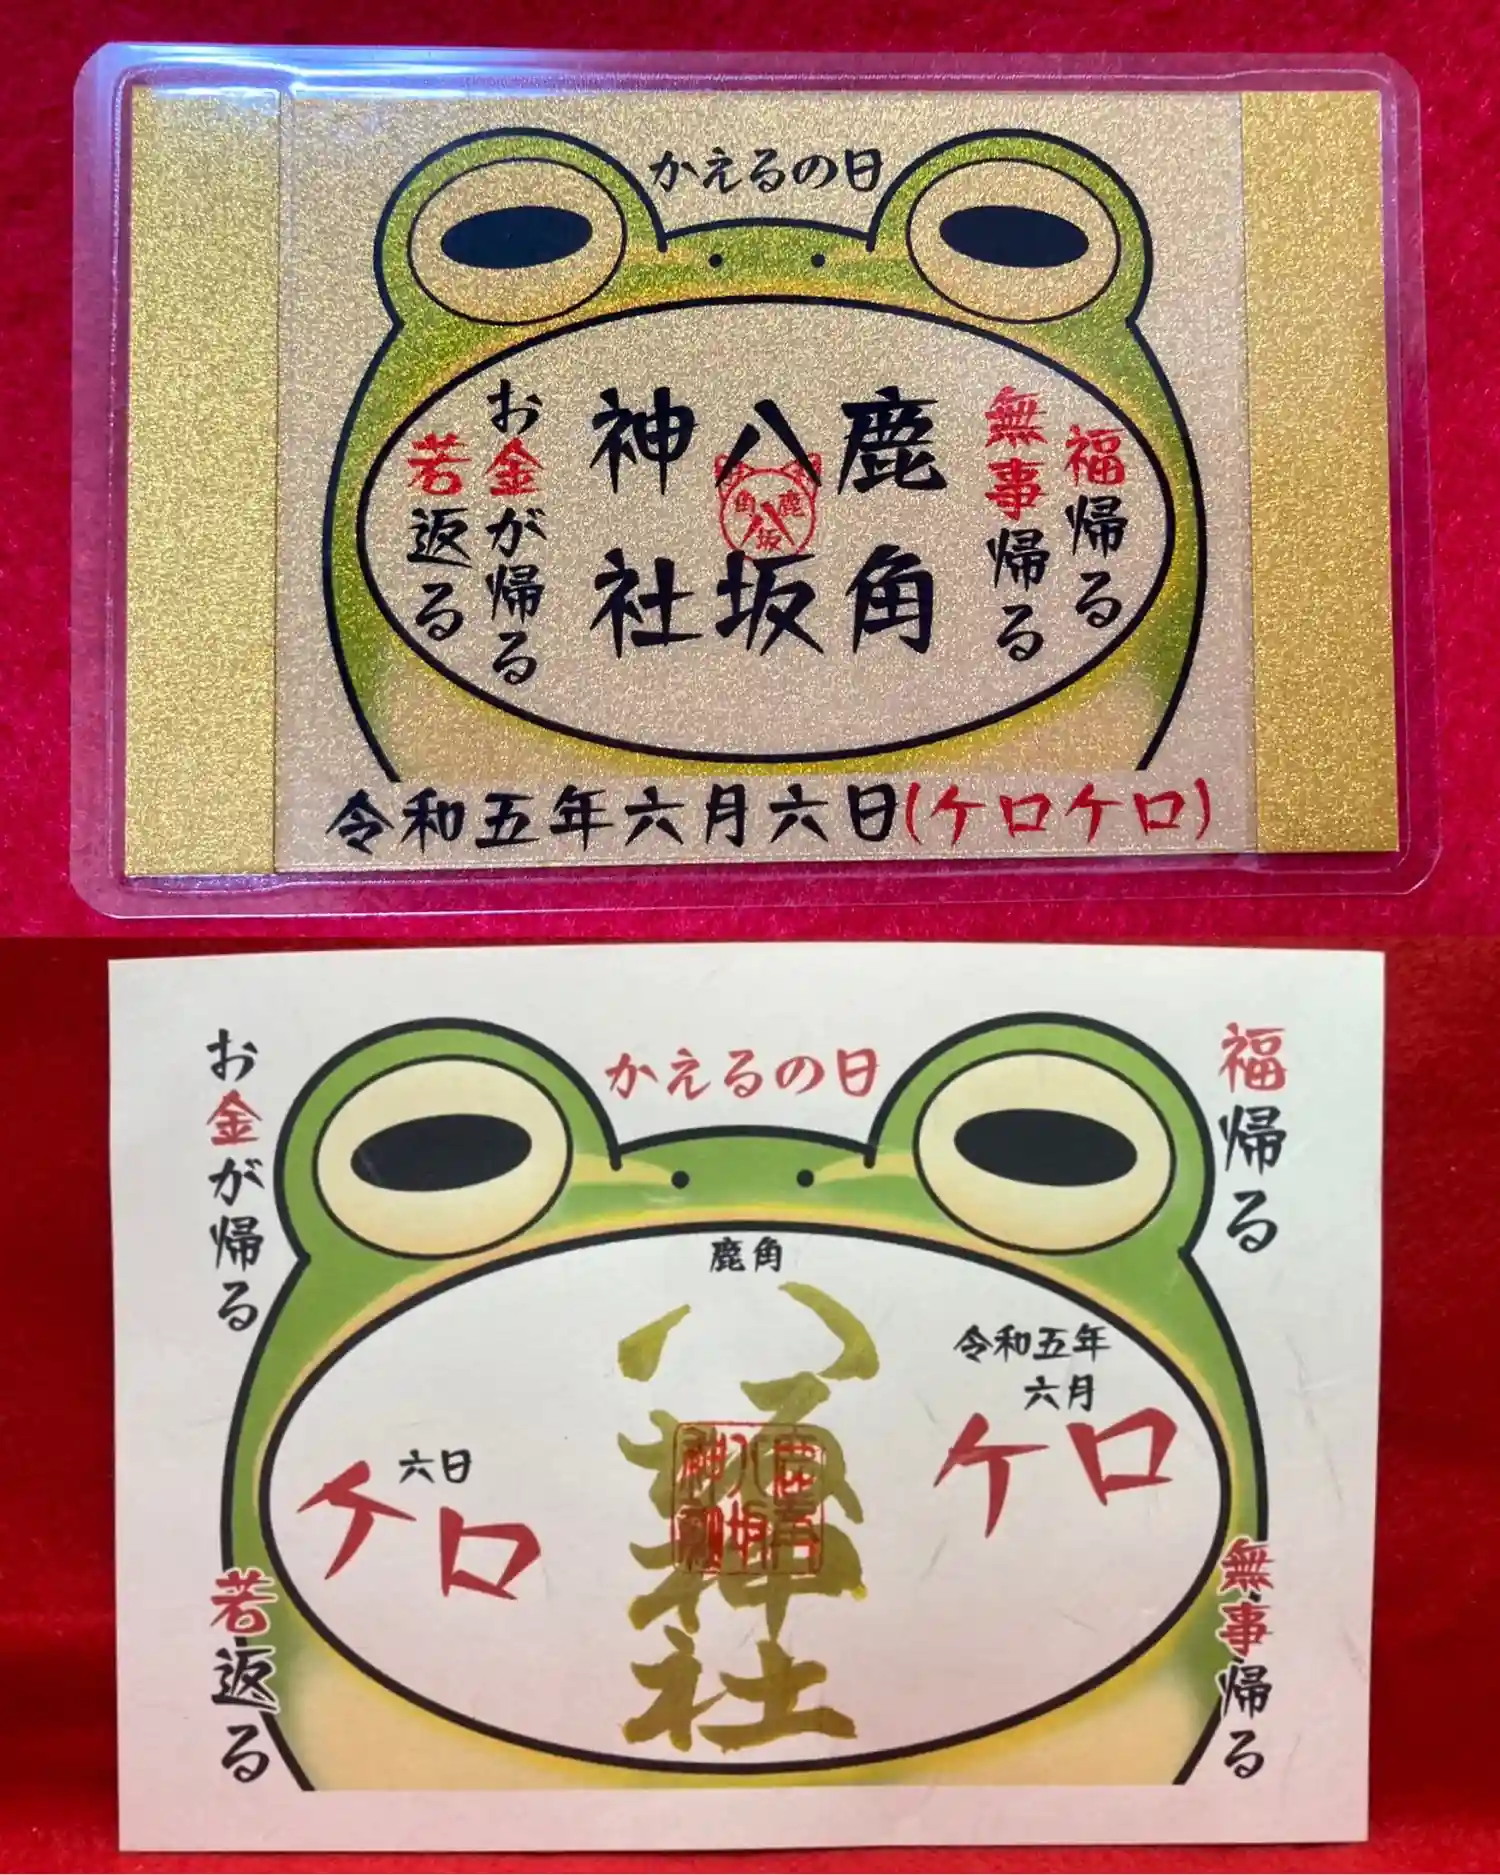 かえるの日
福帰る
無事帰る
鹿角
八坂
神社
お金が帰る
若返る
鹿角
八坂
令和五年六月六日(ケロケロ)
かえるの日
福帰る
無事帰る
鹿角
八坂神社
令和五年
六月
ケロ
六日
ケロ
お金が帰る
若返る